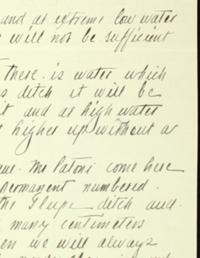 and at extreme low water
will not be sufficient
there is water which
s ditch it will be
it and at high water
higher up without a
Mr Patoni come here
permanent numbered.
the Slupe ditch and
many centimeters
en we will always